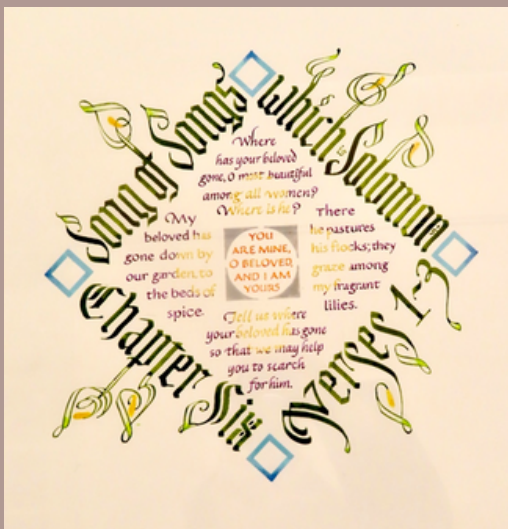 Song of Songs
which is Solomon
Chapter Six
Verses 1-3
Where
has your beloved
gone, O most beautiful
among all women?
Where is he?
My
beloved has
gone down by
our garden, to
the beds of
spice.
YOU
ARE MINE,
O BELOVED,
AND I AM
YOURS
There
he pastures
his flocks; they
graze among
my fragrant
lilies.
Tell us where
your beloved has gone
so that we may help
you to search
for him.